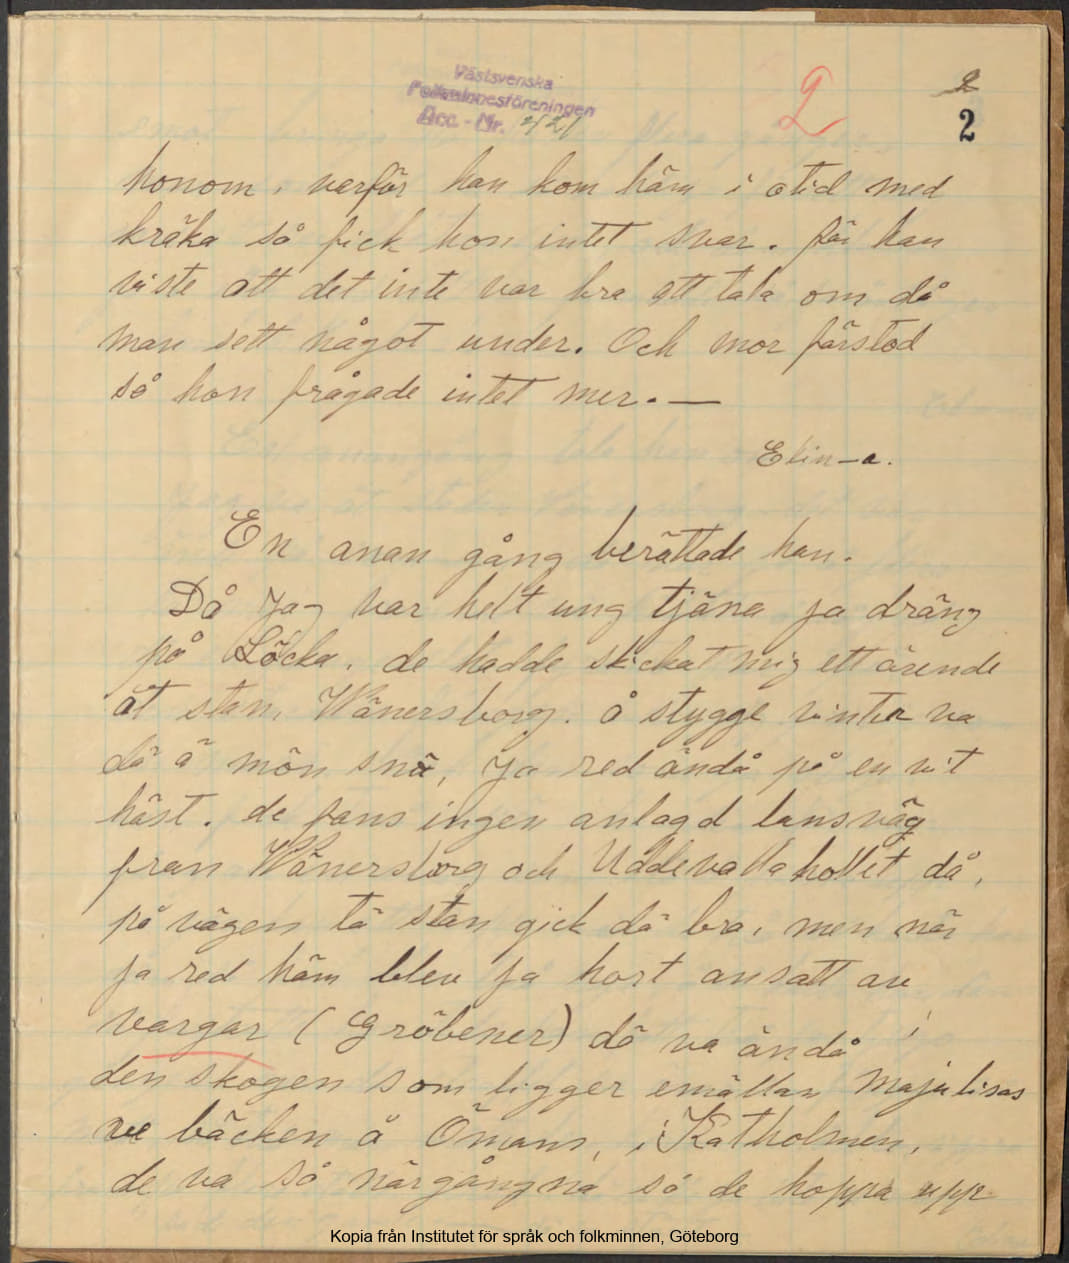 Västsvenska
Folkminnesföreningen
Acc.-Nr. 2721
2
2
2
honom, varför han kom häm i otid med
kräka så fick hon intet svar. för han
viste att det inte var bra att tala om då
man sett något under. Och mor förstod
så hon frågade intet mer. —
En anan gång berättade han.
Då jag var helt ung tjäna ja dräng
på Löcka. de hadde skickat mig ett ärende
åt stan, Wänersborg. å stygge vinter va
dä å môn snö, ja red ändå på en vit
häst. de fans ingen anlagd lansväg
fran Wänersborg och Uddevalla hållet då,
på vägen tä stan gick dä bra, men när
ja red häm blev ja hort ansatt av
vargar (Gröbener) dä va ändå i
den skogen som ligger emällan Maja lisas
ve bäcken å Ömans, i Katholmen,
de va så närgångna så de hoppa upp
Kopia från Institutet för språk och folkminnen, Göteborg